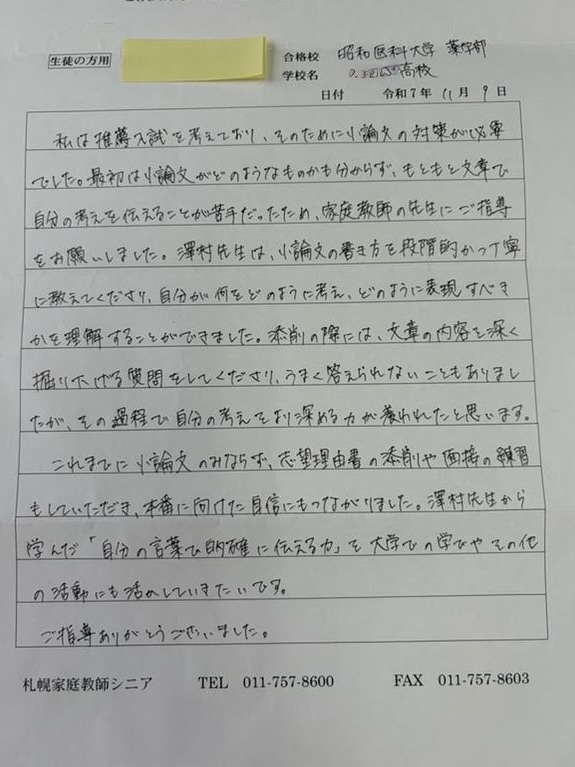 生徒の方用
合格校 昭和医科大学 薬学部
学校名 高校
日付 令和7年 11月 9日
私は推薦入試を考えており、そのために小論文の対策が必要
でした。最初は小論文がどのようなものかも分からず、もともと文章で
自分の考えを伝えることが苦手だったため、家庭教師の先生にご指導
をお願いしました。澤村先生は、小論文の書き方を段階的かつ丁寧
に教えてくださり、自分が何をどのように考え、どのように表現すべき
かを理解することができました。添削の際には、文章の内容を深く
掘り下げる質問をしてくださり、うまく答えられないこともありまし
たが、その過程で自分の考えをより深める力が養われたと思います。
これまでに小論文のみならず、志望理由書の添削や面接の練習
もしていただき、本番に向けた自信にもつながりました。澤村先生から
学んだ「自分の言葉で的確に伝える力」を大学での学びやその他
の活動にも活かしていきたいです。
ご指導ありがとうございました。
札幌家庭教師シニア TEL 011-757-8600 FAX 011-757-8603